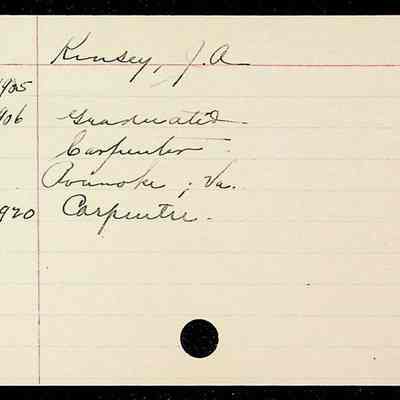 Kinsey, J. A
1905
1906 Graduated
Carpenter
Roanoke, Va.
1920 Carpenter.